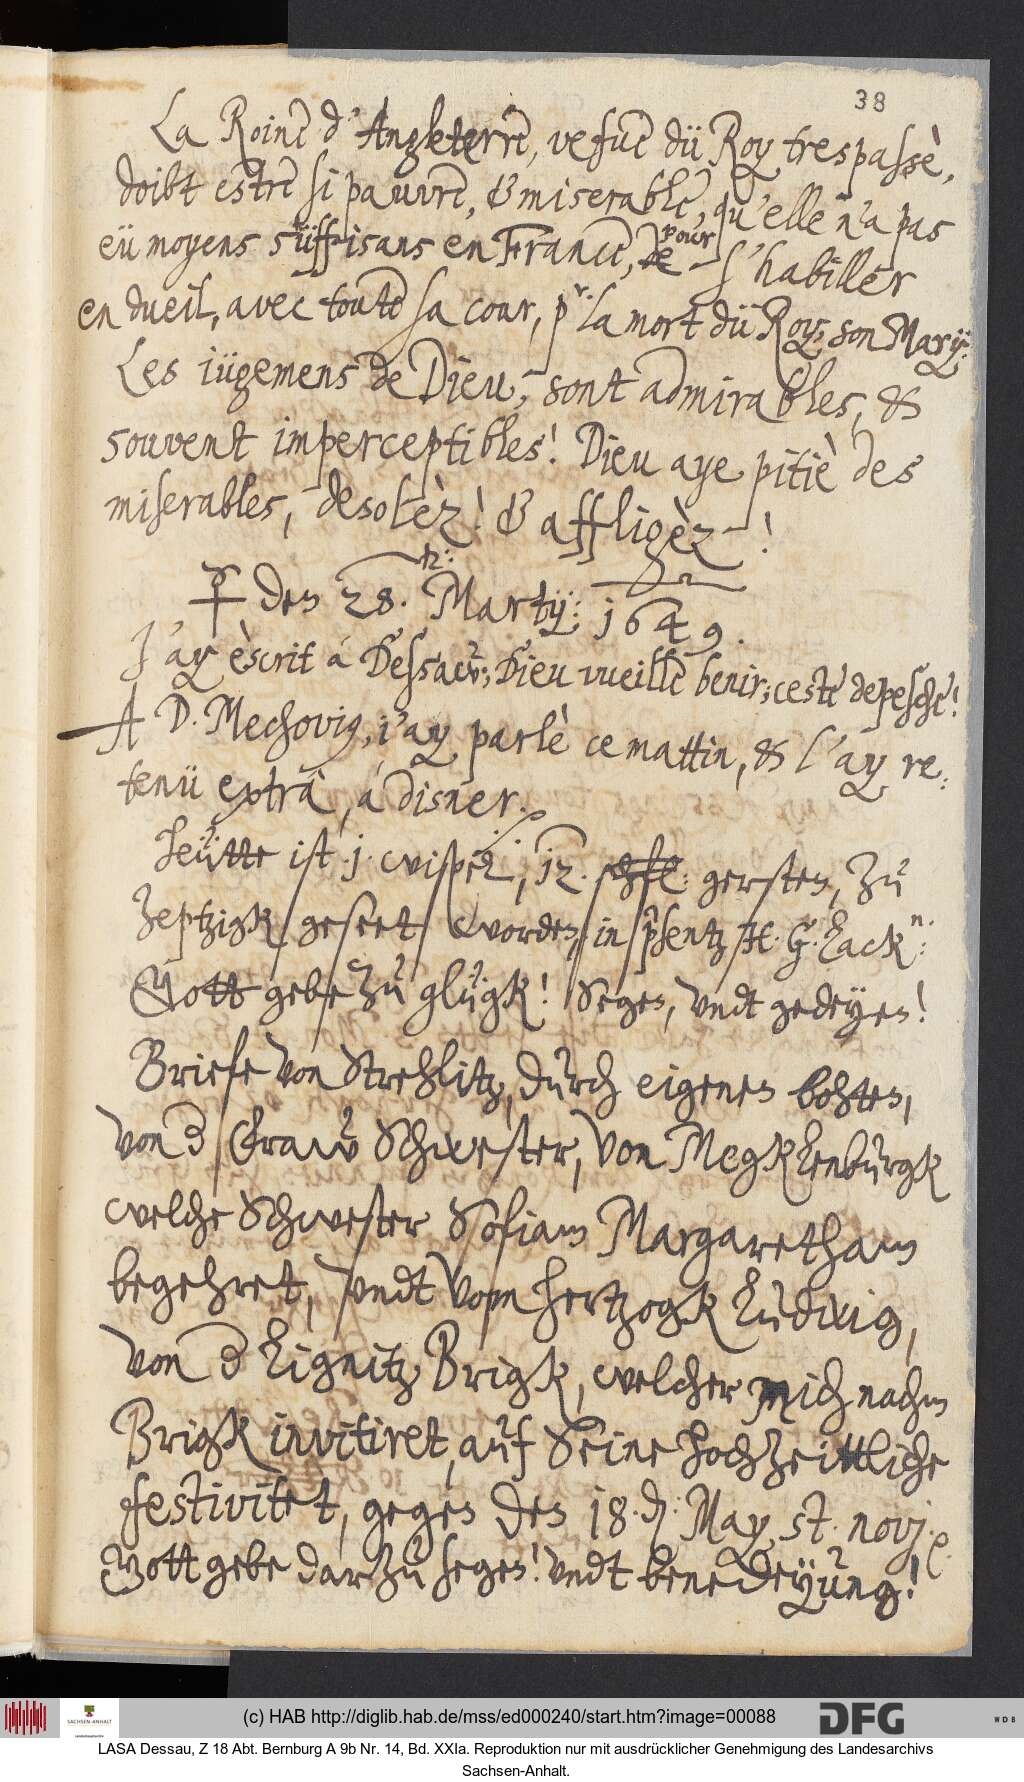 38
La Roine d'Angleterre, vefue dü Roy trespassè,
doibt estre si pauvre, & miserable, qu'elle n'a pas
eü moyens süffisans en France, de pour s'habiller
en dueil, avec toute sa cour, pr. la mort dü Roy, son Marÿ.
Les iügemens de Dieu, sont admirables, &
souvent imperceptibles! Dieu aye pitiè des
miserables, desolèz! & affligèz!
den 28. Martÿ: 1649.
J'ay èscrit á Dessaw; Dieu vueille benir, ceste depesche!
A D. Mechovig, j'ay parlè ce mattin, & l'ay re-
tenü extra, á disner.
Heütte ist 1. wispel, 12. schfl: gersten, zu
Zeptzigk geseet worden, in prsentz H. G. Lackn:
Gott gebe zu glügk! Segen, undt gedeyen!
Briefe von Strehlitz, durch eigenen bohten,
von der Fraw Schwester, von Megklenburgk
welche Schwester Sofiam Margaretham
begehret, undt vom Hertzogk Ludwig,
von der Lignitz Brigk, welcher mich nachm
Brigk invitiret, auf Seine hochzeittliche
festivitet, gegen den 18. d. May, st. novj.
Gott gebe darzu segen! undt benedeyung!
(c) HAB http://diglib.hab.de/mss/ed000240/start.htm?image=00088
SACHSEN-ANHALT
DFG
WDB
LASA Dessau, Z 18 Abt. Bernburg A 9b Nr. 14, Bd. XXIa. Reproduktion nur mit ausdrücklicher Genehmigung des Landesarchivs
Sachsen-Anhalt.